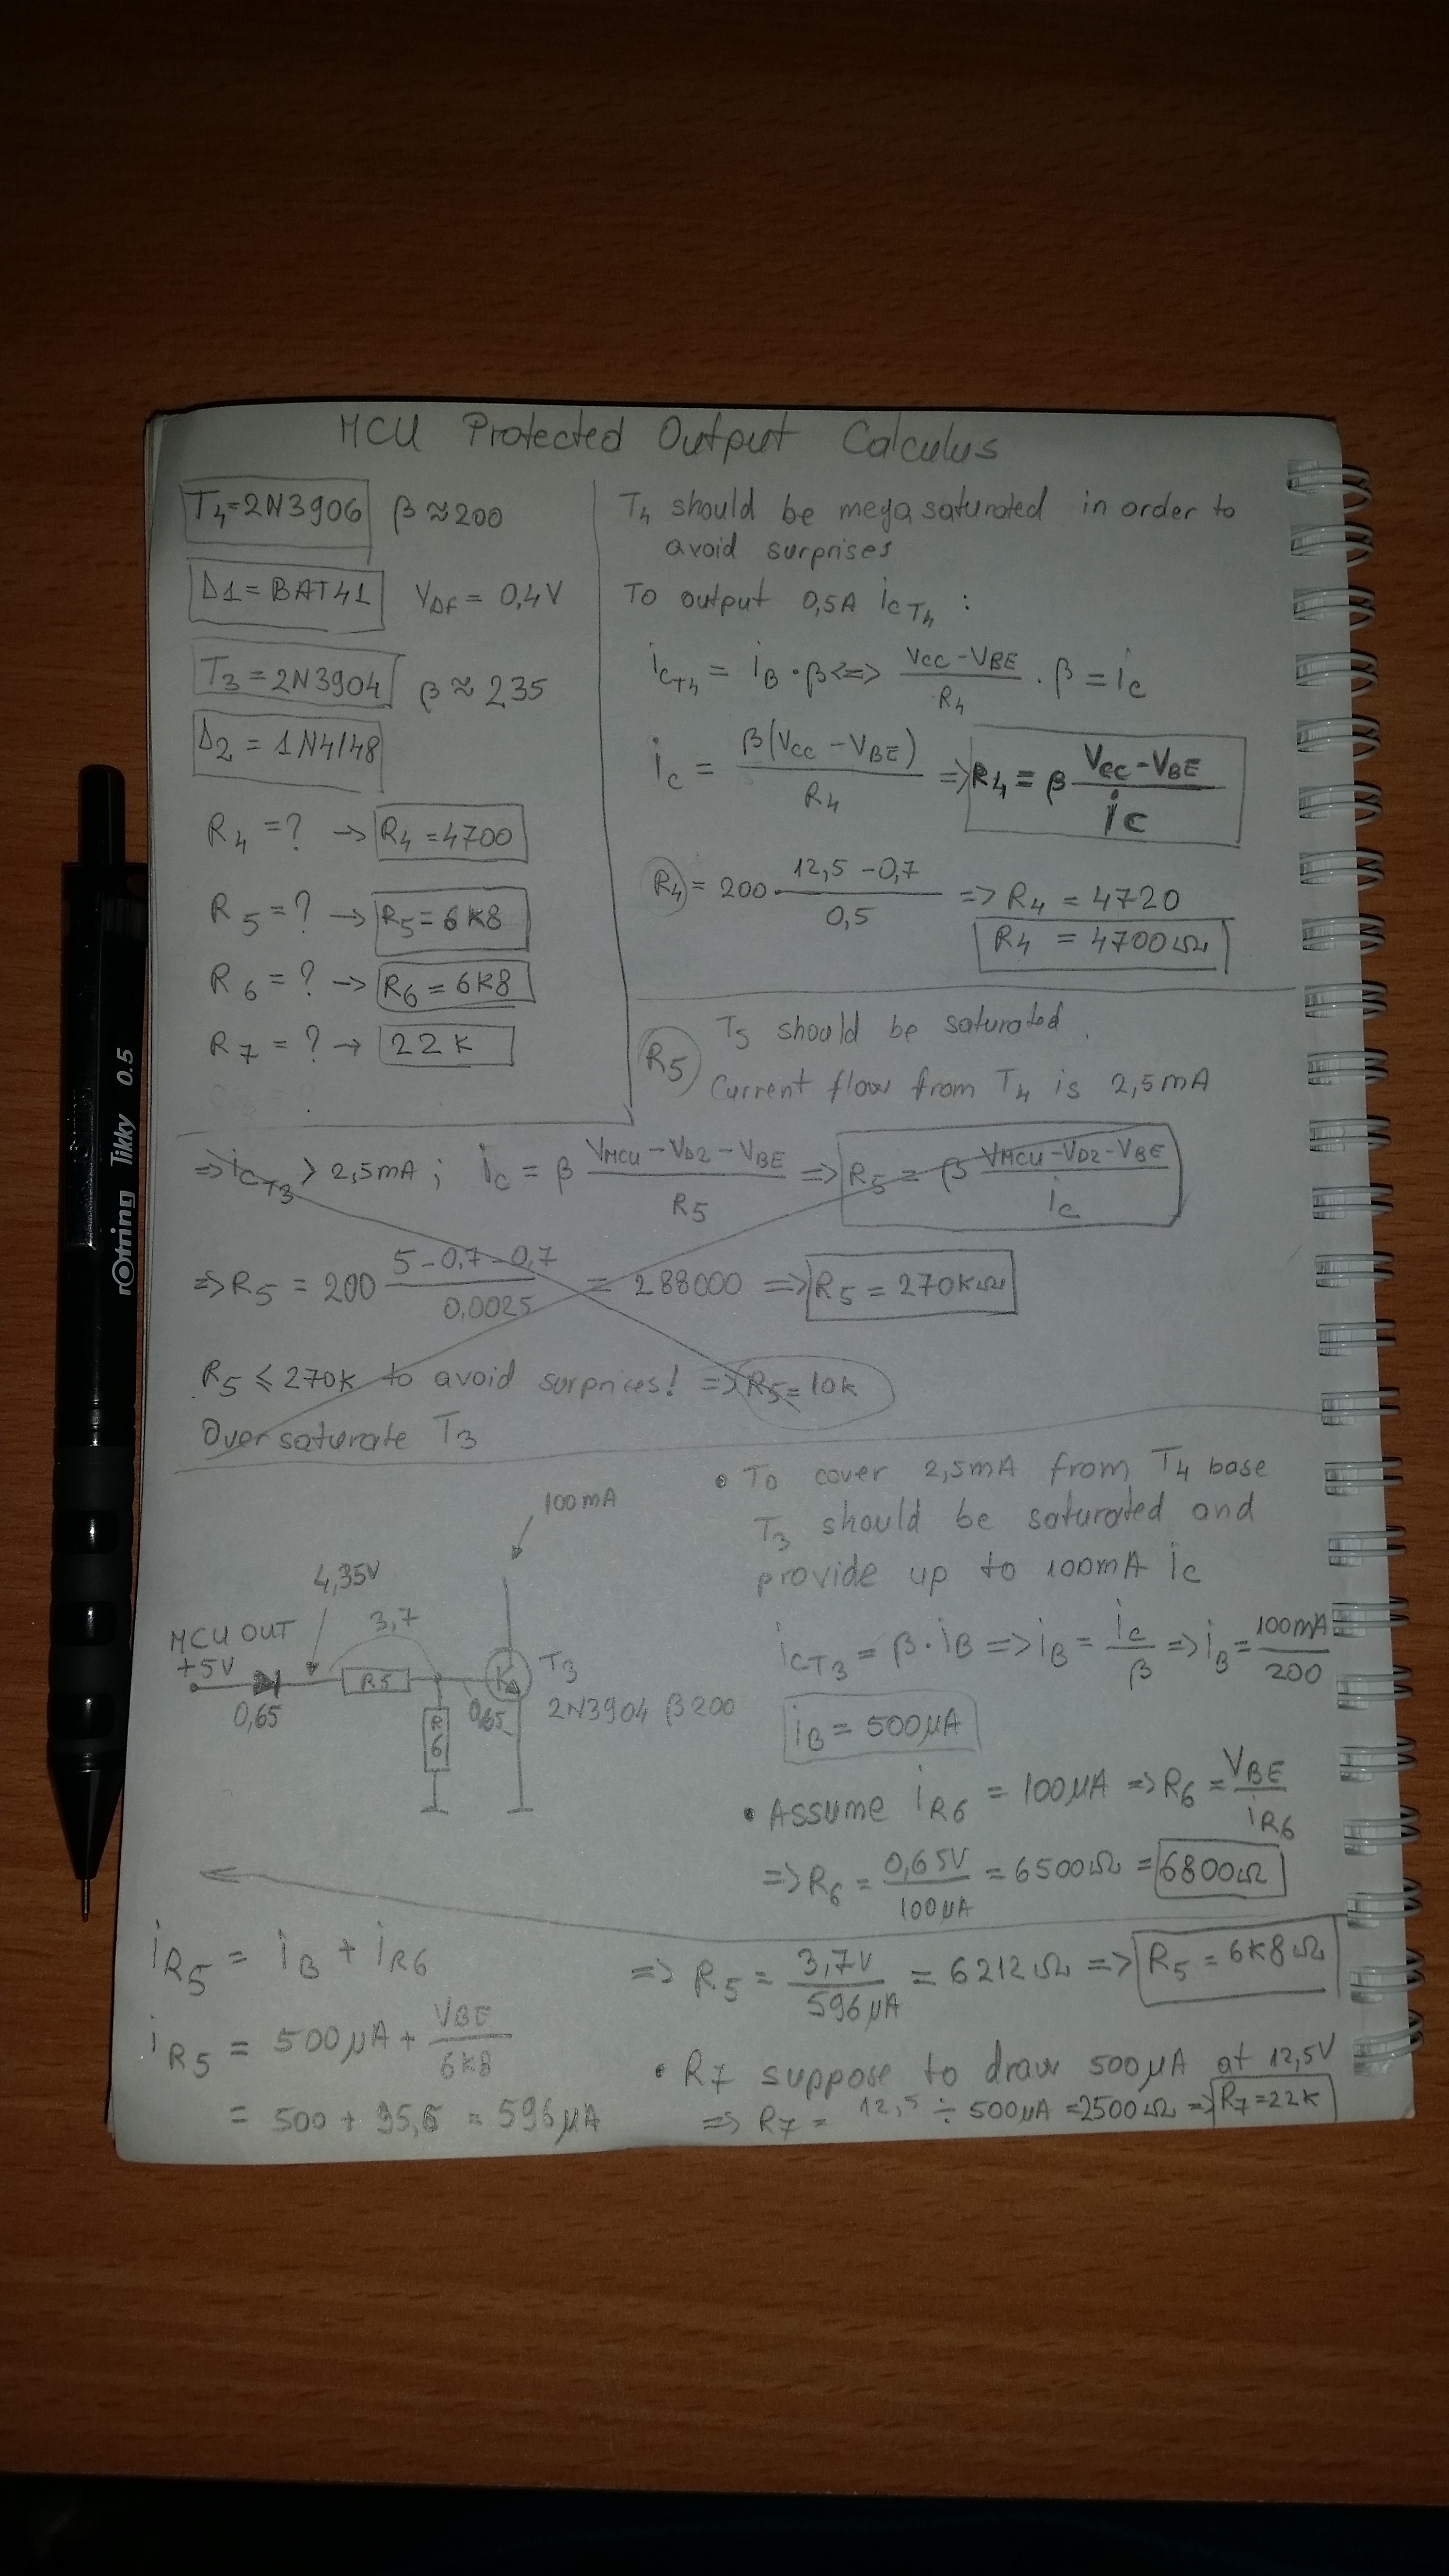 MCU Protected Output Calculus
T4=2N3906 β≈200
D1=BAT41 VDF = 0,4V
T3=2N3904 β≈235
D2=1N4148
R4=? → R4=4700
R5=? → R5=6K8
R6=? → R6=6K8
R7=? → 22K
T4 should be mega saturated in order to
avoid surprises
To output 0,5A icT4 :
icT4 = iB·β <=> (VCC-VBE)/R4 · β = ic
ic = β(VCC-VBE)/R4 => R4 = β (VCC-VBE)/ic
R4 = 200 · (12,5-0,7)/0,5 => R4 = 4720
R4 = 4700Ω
R5 T3 should be saturated.
Current flow from T4 is 2,5mA
=> icT3 > 2,5mA ; ic = β (VMCU-VD2-VBE)/R5 => R5 = β (VMCU-VD2-VBE)/ic
=> R5 = 200 (5-0,7-0,7)/0,0025 = 288000 => R5 = 270KΩ
R5 ≤ 270K to avoid surprises! => R5=10K
Over saturate T3
100mA
4,35V
3,7
MCU OUT
+5V
0,65
R5
R6
0,65
T3
2N3904 β200
• To cover 2,5mA from T4 base
T3 should be saturated and
provide up to 100mA ic
icT3 = β·iB => iB = ic/β => iB = 100mA/200
iB = 500μA
• Assume iR6 = 100μA => R6 = VBE/iR6
=> R6 = 0,65V/100μA = 6500Ω = 6800Ω
iR5 = iB + iR6
iR5 = 500μA + VBE/6K8
= 500 + 95,6 = 596μA
=> R5 = 3,7V/596μA = 6212Ω => R5 = 6K8Ω
• R7 suppose to draw 500μA at 12,5V
=> R7 = 12,5 ÷ 500μA =2500Ω => R7=22K
rotring Tikky 0.5